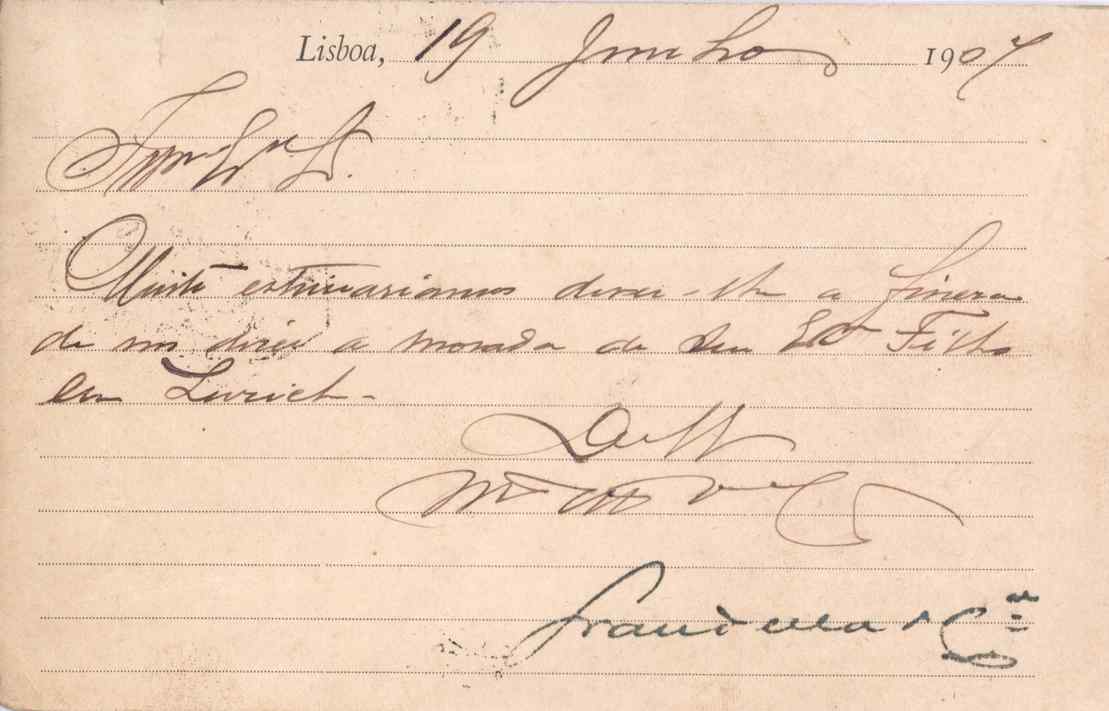 Lisboa, 19 Junho 1907
Illmo Exmo Sr.
Muito estimariamos dever-lhe a fineza
de nos dizer a morada de Seu Exmo Filho
em Zurich -
De V.
Mto Atos
Grandella & Cia